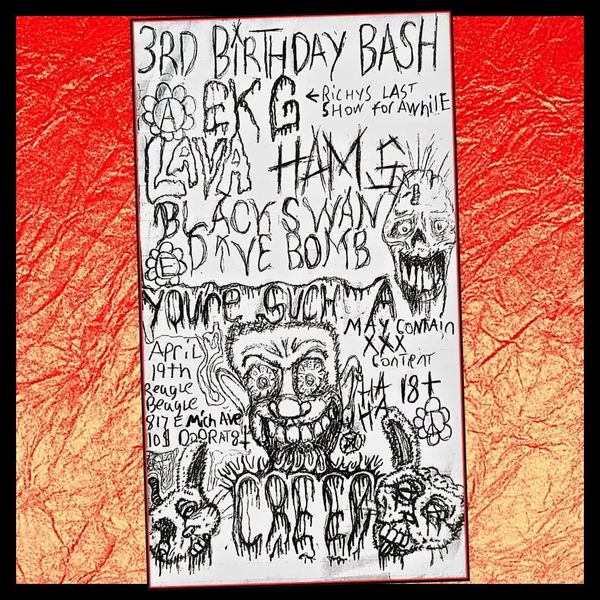 3RD BIRTHDAY BASH
A EKG ←RICHYS LAST
SHOW for AwhilE
LAVA HAMS
BLACK SWAN
E DIVE BOMB
YOU'RE SUCH A
MAY CONTAIN
XXX
CONTENT
APriL
19th
Reagle
Beagle
817 E Mich Ave
10$ DOORAT8
HA 18+
HA
A
CREEP